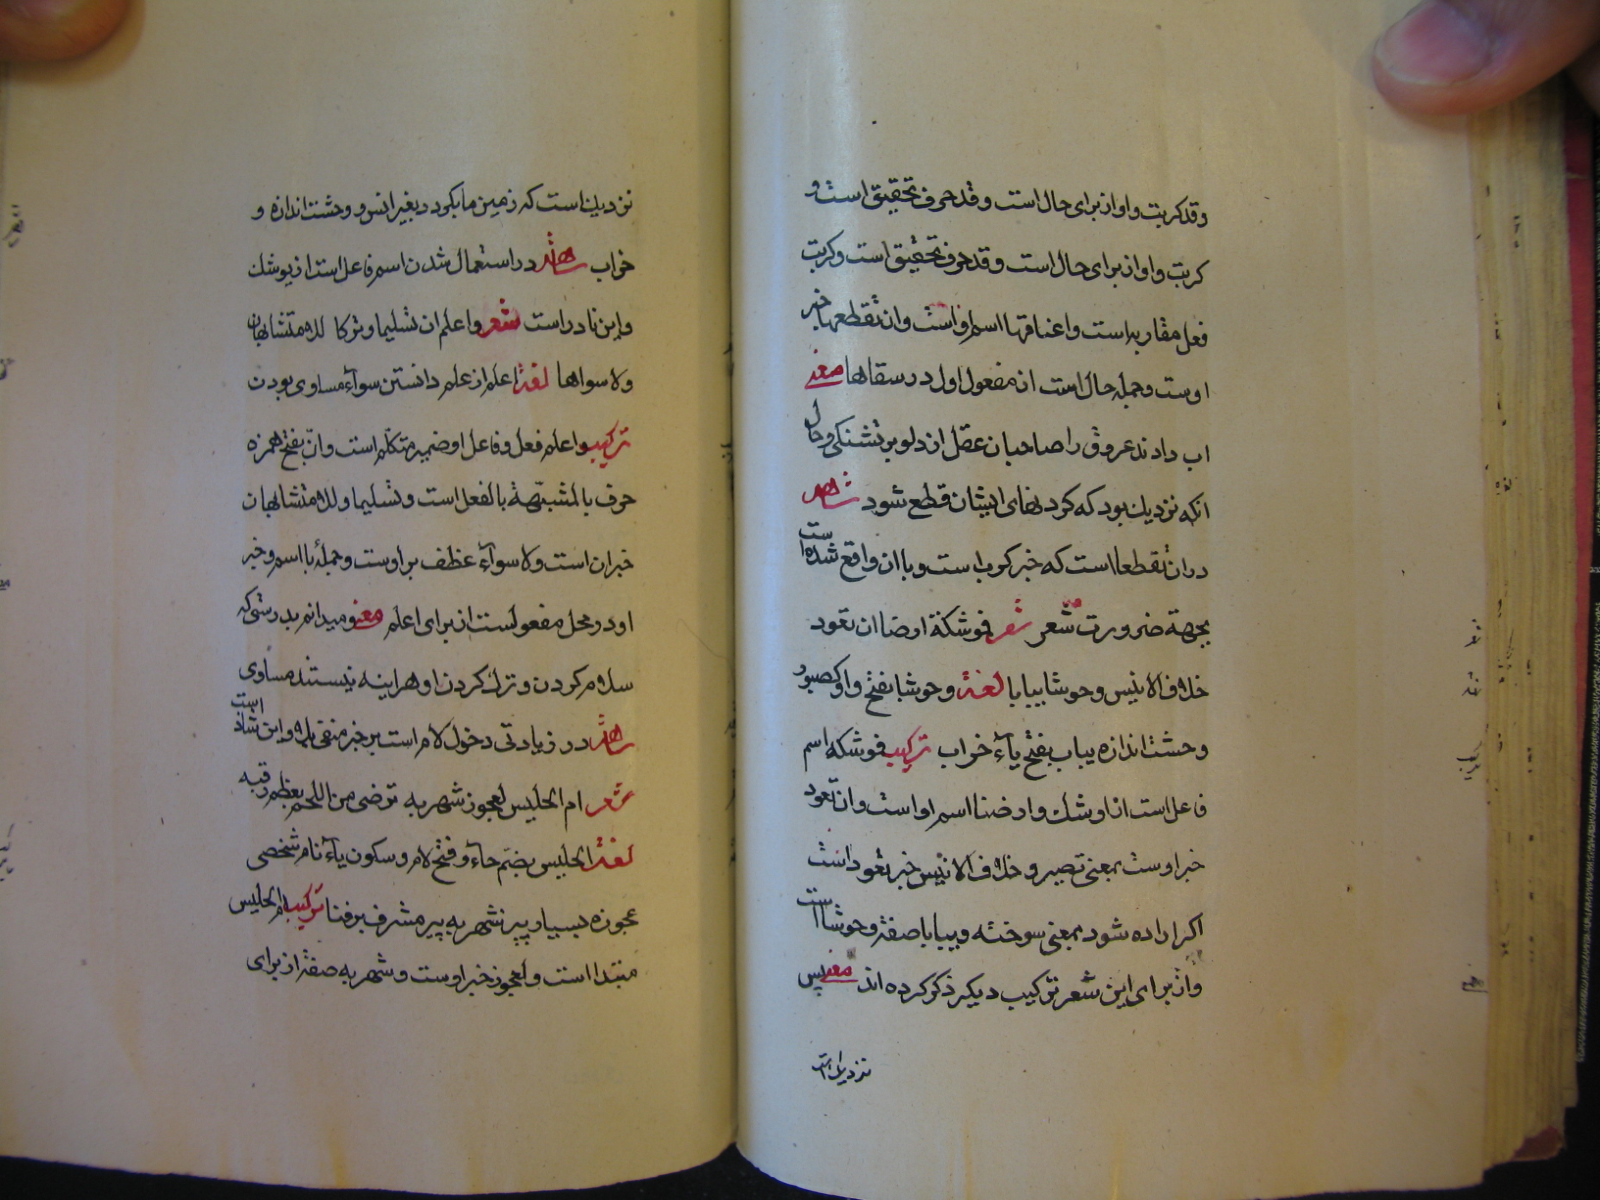 وقد كربت واو از برای حال است و قد حرف تحقیق است و
كربت واو از برای حال است و قد حرف تحقیق است و كربت
فعل مقاربه است واعناقها اسم او است وان تقطعها خبر
اوست و جمله حال است از مفعول اول در سقاها معنی
اب دادند عروق را صاحبان عقل از دلو بر تشنكی و حال
انكه نزدیك بود كه كردنهای ایشان قطع شود شاهد
در ان تقطعا است كه خبر كرب است و با ان واقع شده است
بجهة ضرورت شعر شعر فموشكة ارضنا ان تعود
خلاف الانیس وحوشا یبابا لغة وحوشا بفتح واو كصبور
وحشت اندازه یباب بفتح یاء خراب تركیب فموشكه اسم
فاعل است از اوشك وارضنا اسم او است وان تعود
خبر اوست بمعنی تصیر و خلاف الانیس خبر تعود است
اكر اراده شود بمعنی سوخته و یبابا صفة وحوشا است
و از برای این شعر تركیب دیكر ذكر كرده اند معنی پس
نزدیك است
نزدیك است كه زمین ما بكردد بغیر انس و وحشت اندازه و
خراب شاهد در استعمال شدن اسم فاعل است از یوشك
و این نادر است شعر واعلم ان تسلیما وتركا للا متشابهان
ولا سواها لغة اعلم از علم دانستن سوآء مساوی بودن
تركیب واعلم فعل و فاعل او ضمیر متكلم است وانّ بفتح همزه
حرف بالمشبّهة بالفعل است و تسلیما و للا متشابهان
خبر ان است ولا سوآء عطف بر اوست و جملهٔ با اسم و خبر
او در محل مفعولست از برای اعلم معنی و میدانم بدرستی كه
سلام كردن و ترك كردن او هراینه نیستند مساوی
شاهد در زیادتی دخول لام است بر خبر منفی بلا و این شاذ است
شعر ام الحلیس لعجوز شهربه ترضی من اللحم بعظم رقبه
لغة الحلیس بضم حاء و فتح لام و سكون یآء نام شخصی
عجوزه بسیار پیر شهربه پیر مشرف بر فنا تركیب ام الحلیس
مبتدا است و لعجوز خبر اوست و شهربه صفة از برای